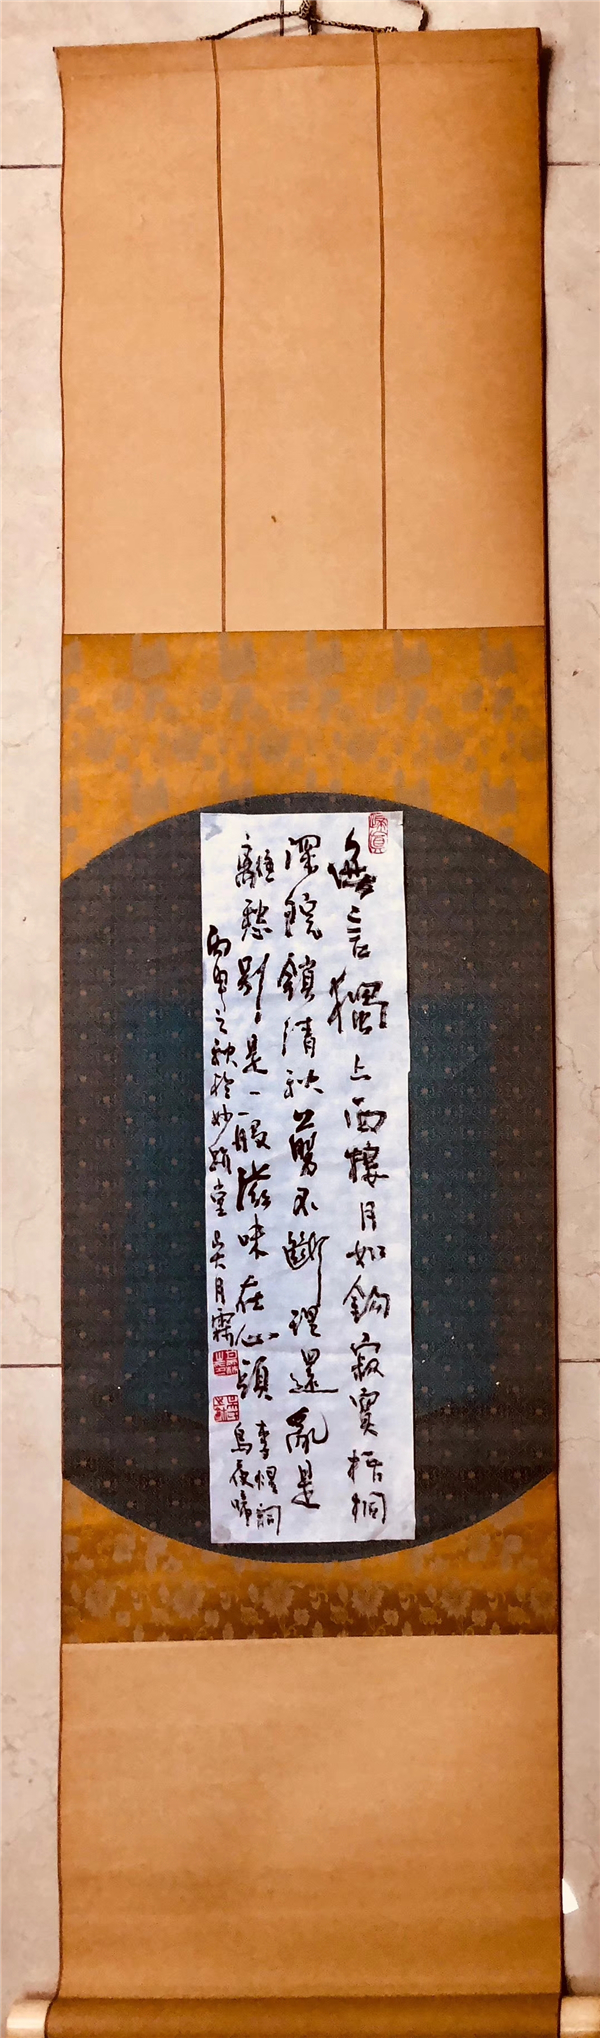 無言獨上西樓月如鈎寂寞梧桐
深院鎖清秋剪不斷理還亂是
離愁別是一般滋味在心頭
李煜詞
烏夜啼
丙申之秋於妙堂吳月霖